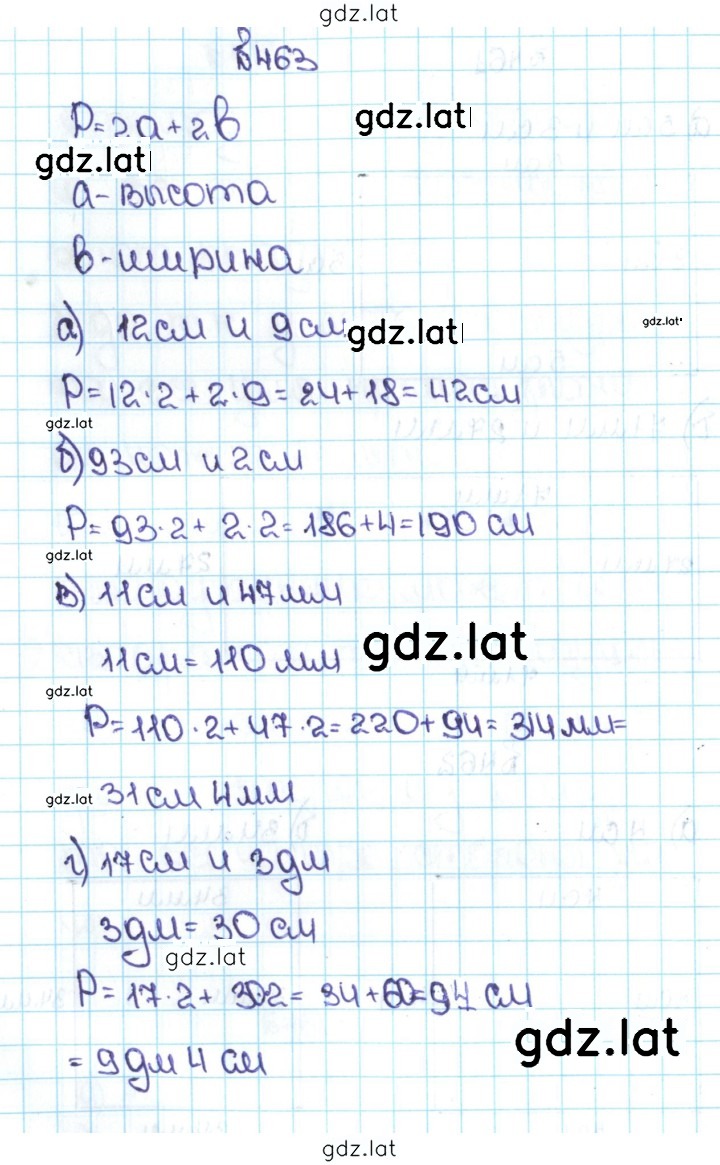 gdz.lat
№463
P=2a+2в
gdz.lat
gdz.lat
a-высота
в-ширина
а) 12см и 9см
gdz.lat
gdz.lat
P=12·2+2·9=24+18=42см
gdz.lat
б) 93см и 2см
P=93·2+2·2=186+4=190 см
gdz.lat
в) 11см и 47мм
11см=110мм
gdz.lat
gdz.lat
P=110·2+47·2=220+94=314мм=
gdz.lat
31см 4мм
г) 17см и 3дм
3дм=30см
gdz.lat
P=17·2+30·2=34+60=94 см
gdz.lat
=9дм 4 см
gdz.lat